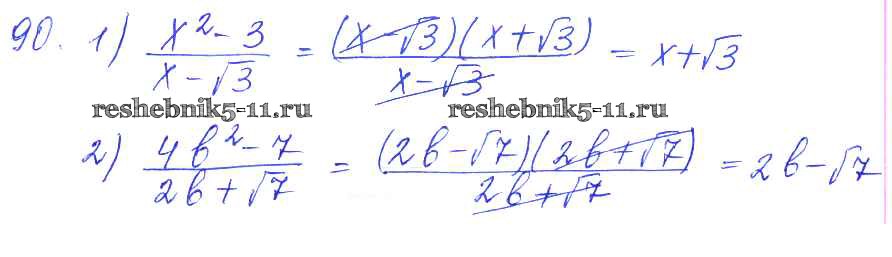 90. 1) (x² - 3)/(x - √3) = ((x - √3)(x + √3))/(x - √3) = x + √3
reshebnik5-11.ru reshebnik5-11.ru
2) (4b² - 7)/(2b + √7) = ((2b - √7)(2b + √7))/(2b + √7) = 2b - √7